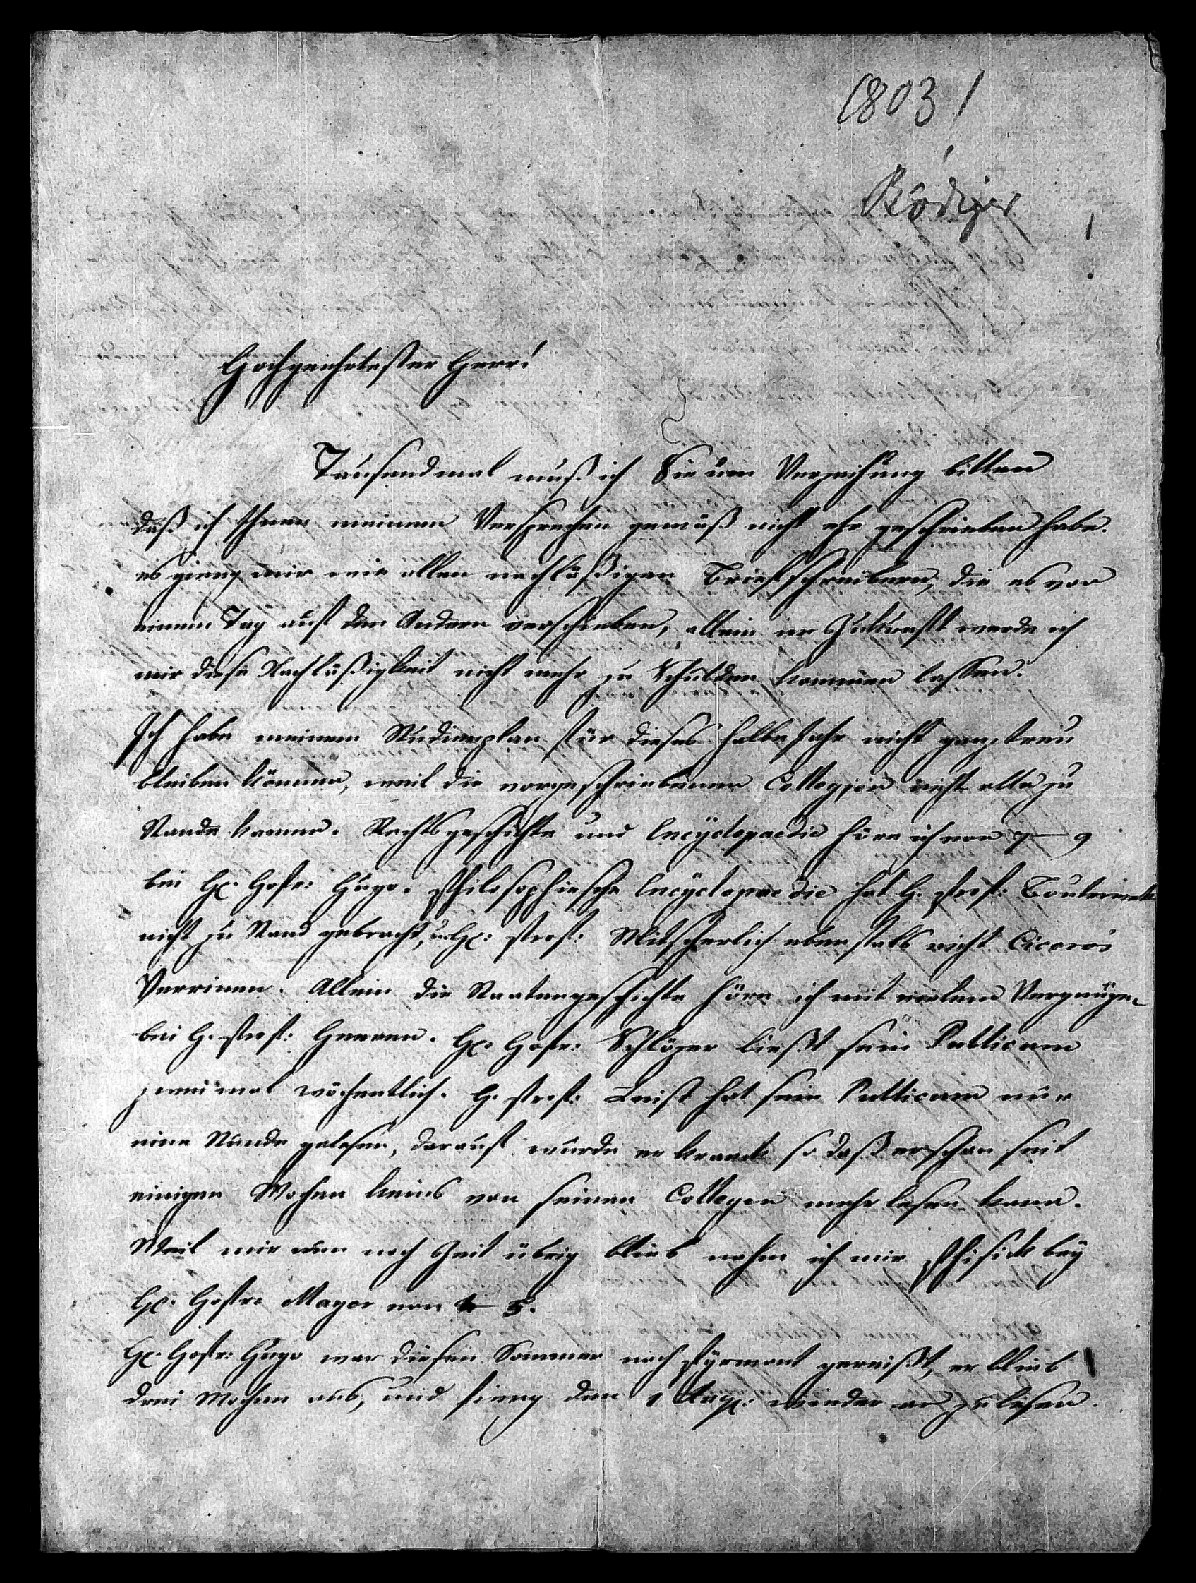 1803 /
Rödiger
Hochgeehrtester Herr!
Tausendmal muß ich Sie um Verzeihung bitten
daß ich Ihnen meinem Versprechen gemäß nicht ehr geschrieben habe.
es gieng mir wie allen nachläßigen Briefschreibern, die es von
einem Tag auf den Andern verschieben, allein in Zukunft werde ich
mir diese Nachläßigkeit nicht mehr zu Schulden kommen lassen.
Ich habe meinem Studienplan für dieses halbe Jahr nicht ganz treu
bleiben können, weil die vorgeschriebenen Collegien nicht alle zu
Stande kamen. Rechtsgeschichte und Encyclopaedie höre ich von 7 – 9
bei H. Hofr: Hugo. Philosophische Encyclopaedie hat H. Prof: Bouterweck
nicht zu Stand gebracht, u. H: Prof: Mitscherlich ebenfalls nicht Cicero's
Verrinen. Allein die Staatengeschichte höre ich mit vielem Vergnügen
bei H. Prof: Heeren. H. Hofr: Schlözer ließt sein Publicum
zweimal wöchentlich. H. Prof: Leist hat sein Publicum nur
eine Stunde gelesen, darauf wurde er krank so daß er schon seit
einigen Wochen keins von seinen Collegen mehr lesen kann.
Weil mir nun noch Zeit übrig blieb nahm ich mir Phisick bey
H. Hofr: Mayer von 4 – 5.
H. Hofr: Hugo war diesen Sommer nach Pyrmont gereißt, er blieb
drei Wochen aus, und fieng den 1 Aug: wieder an zu lesen.